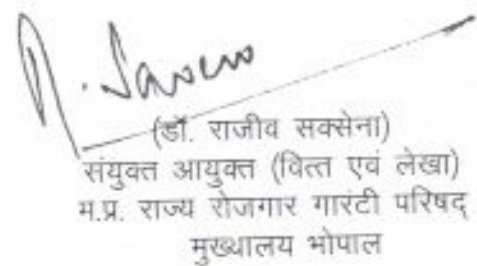 (डॉ. राजीव सक्सेना)
संयुक्त आयुक्त (वित्त एवं लेखा)
म.प्र. राज्य रोजगार गारंटी परिषद्
मुख्यालय भोपाल